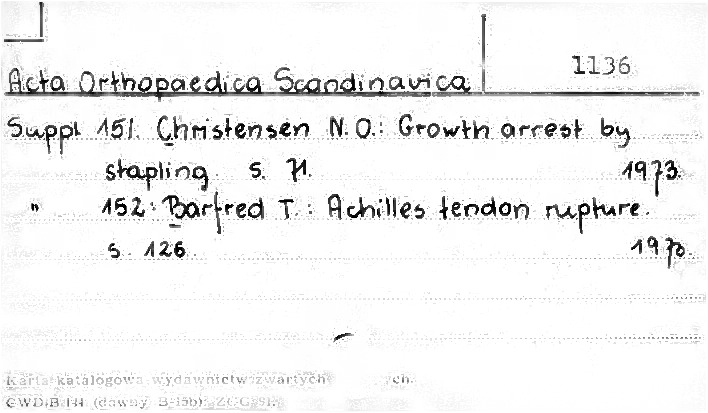 1136
Acta Orthopaedica Scandinavica
Suppl 151. Christensen N.O.: Growth arrest by
stapling. s. 71. 1973.
" 152: Barfred T.: Achilles tendon rupture.
s. 126. 1970.
Karta katalogowa wydawnictw zwartych